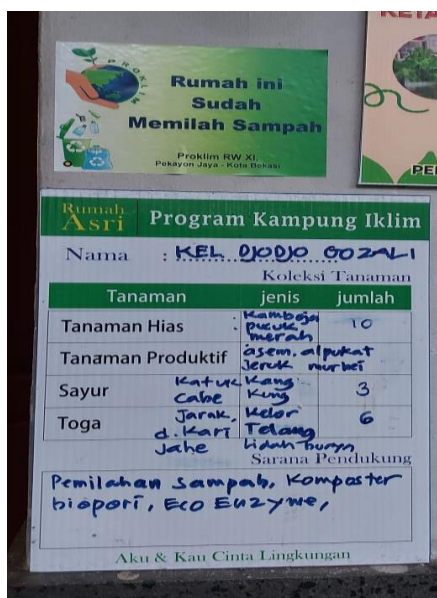 PROKLIM
Rumah ini
Sudah
Memilah Sampah
Proklim RW XI,
Pekayon Jaya - Kota Bekasi
Rumah
Asri
Program Kampung Iklim
Nama : KEL DJODJO GOZALI
Koleksi Tanaman
Tanaman jenis jumlah
Tanaman Hias : Kamboja 10
pucuk
merah
Tanaman Produktif asem, alpukat
Jeruk murbei
Sayur Katuk Kang 3
Cabe Kung
Toga Jarak, Kelor 6
d. Kari Telang
Jahe Lidah buaya
Sarana Pendukung
Pemilahan Sampah, Komposter
biopori, Eco Enzyme,
Aku & Kau Cinta Lingkungan